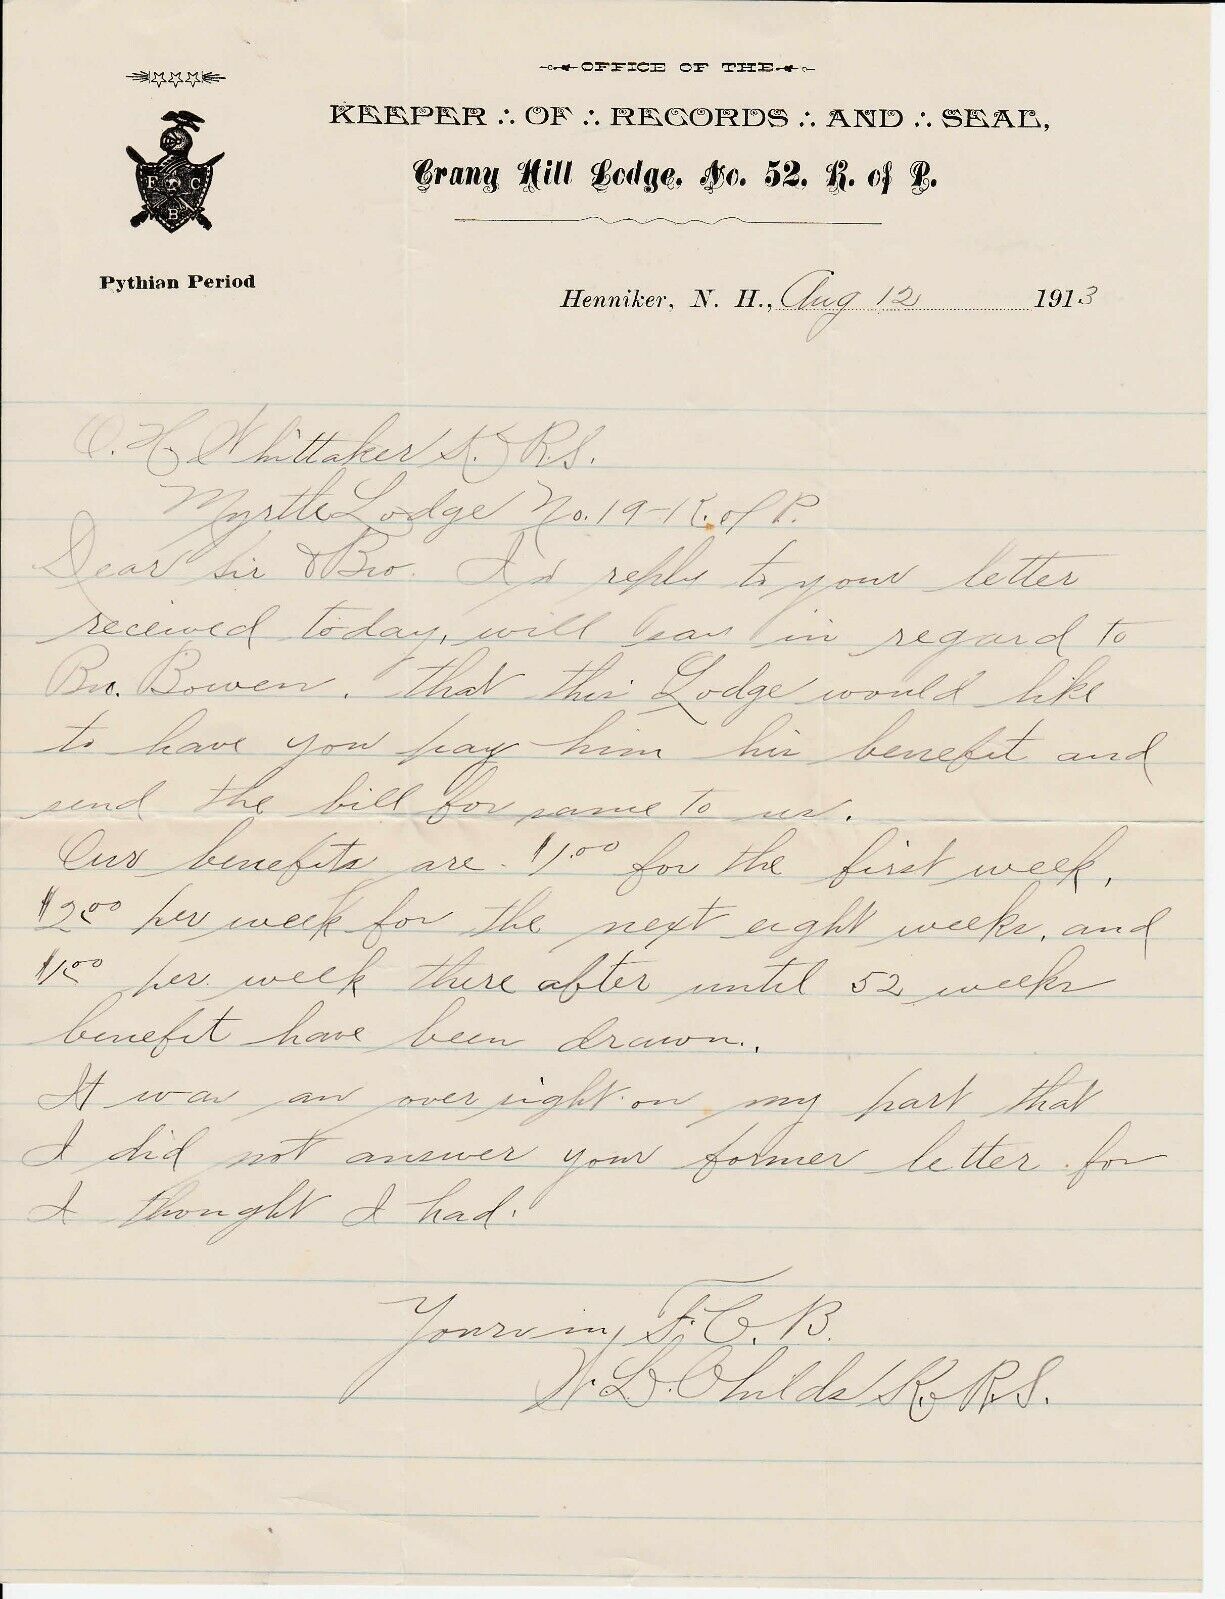 OFFICE OF THE
KEEPER ∴ OF ∴ RECORDS ∴ AND ∴ SEAL,
Crany Hill Lodge, No. 52, K. of P.
F C
B
Pythian Period
Henniker, N. H., Aug 12 1913
O. H. Whittaker K. of R.S.
Myrtle Lodge No. 19-K. of P.
Dear Sir & Bro. In reply to your letter
received today, will say in regard to
Bro. Bowen. that this Lodge would like
to have you pay him his benefit and
send the bill for same to us.
Our benefits are $1.00 for the first week,
$2.00 per week for the next eight weeks, and
$1.00 per week there after until 52 weeks
benefit have been drawn.
It was an over sight on my part that
I did not answer your former letter for
I thought I had.
Yours in F. C. B.
Childs K. of R. S.